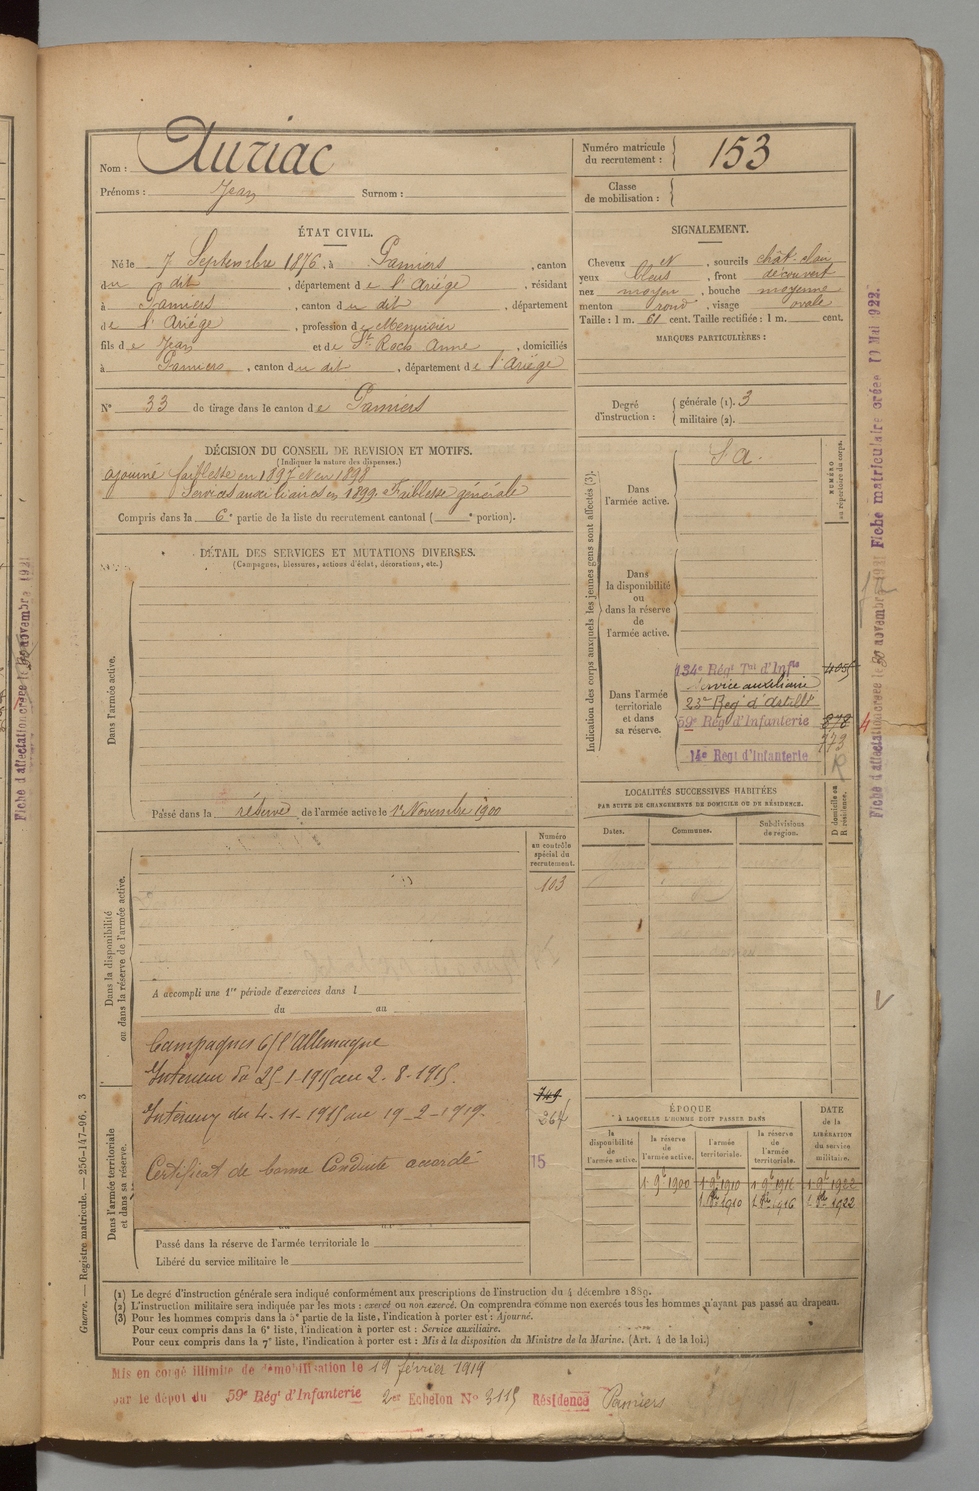 Nom : Auriac
Prénoms : Jean Surnom :
Numéro matricule du recrutement : 153
Classe de mobilisation :
ÉTAT CIVIL.
Né le 7 Septembre 1876, à Pamiers, canton
du dit, département de l'Ariége, résidant
à Pamiers, canton du dit, département
de l'Ariége, profession de Menuisier
fils de Jean et de St Roch Anne, domiciliés
à Pamiers, canton du dit, département de l'Ariége
N° 33 de tirage dans le canton de Pamiers
SIGNALEMENT.
Cheveux et, sourcils chât-clair
yeux bleus, front découvert
nez moyen, bouche moyenne
menton rond, visage ovale
Taille : 1 m. 61 cent. Taille rectifiée : 1 m. cent.
MARQUES PARTICULIÈRES :
Degré d'instruction : générale (1). 3
militaire (2).
DÉCISION DU CONSEIL DE REVISION ET MOTIFS.
(Indiquer la nature des dispenses.)
ajourné faiblesse en 1897 et en 1898
Services auxiliaires en 1899. Faiblesse générale
Compris dans la 6e partie de la liste du recrutement cantonal ( e portion).
DÉTAIL DES SERVICES ET MUTATIONS DIVERSES.
(Campagnes, blessures, actions d'éclat, décorations, etc.)
Dans l'armée active.
Passé dans la réserve de l'armée active le 1er Novembre 1900
Indication des corps auxquels les jeunes gens sont affectés (3).
NUMÉRO au répertoire du corps.
Dans l'armée active.
S a.
Dans la disponibilité ou dans la réserve de l'armée active.
Dans l'armée territoriale et dans sa réserve.
134e Régt Tal d'Infie
Service auxiliaire
23e Reg' d'Artill'
59e Rég' d'Infanterie 878
773
14e Regt d'Infanterie
R
LOCALITÉS SUCCESSIVES HABITÉES
PAR SUITE DE CHANGEMENTS DE DOMICILE OU DE RÉSIDENCE.
D domicile ou R résidence.
Dates. Communes. Subdivisions de region.
Numéro au contrôle spécial du recrutement.
103
Dans la disponibilité ou dans la réserve de l'armée active.
A accompli une 1re période d'exercices dans l
du au
Campagnes c/ l'Allemagne
Intérieur du 25-1-1915 au 2-8-1915.
Intérieur du 4-11-1915 au 19-2-1919.
Certificat de bonne Conduite accordé
749
264
15
Dans l'armée territoriale et dans sa réserve.
Passé dans la réserve de l'armée territoriale le
Libéré du service militaire le
ÉPOQUE
À LAQUELLE L'HOMME DOIT PASSER DANS
DATE de la LIBÉRATION du service militaire.
la disponibilité de l'armée active.
la réserve de l'armée active.
l'armée territoriale.
la réserve de l'armée territoriale.
1 9e 1900 1 9e 1910 1 9e 1916 1 9e 1922
1 8e 1910 1 8e 1916 1 8e 1922
(1) Le degré d'instruction générale sera indiqué conformément aux prescriptions de l'instruction du 4 décembre 1889.
(2) L'instruction militaire sera indiquée par les mots : exercé ou non exercé. On comprendra comme non exercés tous les hommes n'ayant pas passé au drapeau.
(3) Pour les hommes compris dans la 5e partie de la liste, l'indication à porter est : Ajourné.
Pour ceux compris dans la 6e liste, l'indication à porter est : Service auxiliaire.
Pour ceux compris dans la 7e liste, l'indication à porter est : Mis à la disposition du Ministre de la Marine. (Art. 4 de la loi.)
Mis en congé illimité de démobilisation le 19 février 1919
par le dépot du 59e Rég' d'Infanterie 2er Echelon N° 3115 Résidence Pamiers
Guerre. — Registre matricule. — 256-147-96. 3
Fiche d'affectation créée le 30 novembre 1921 Fiche matriculaire créée Mai 1922.
Fiche d'affectation créée le novembre 1921